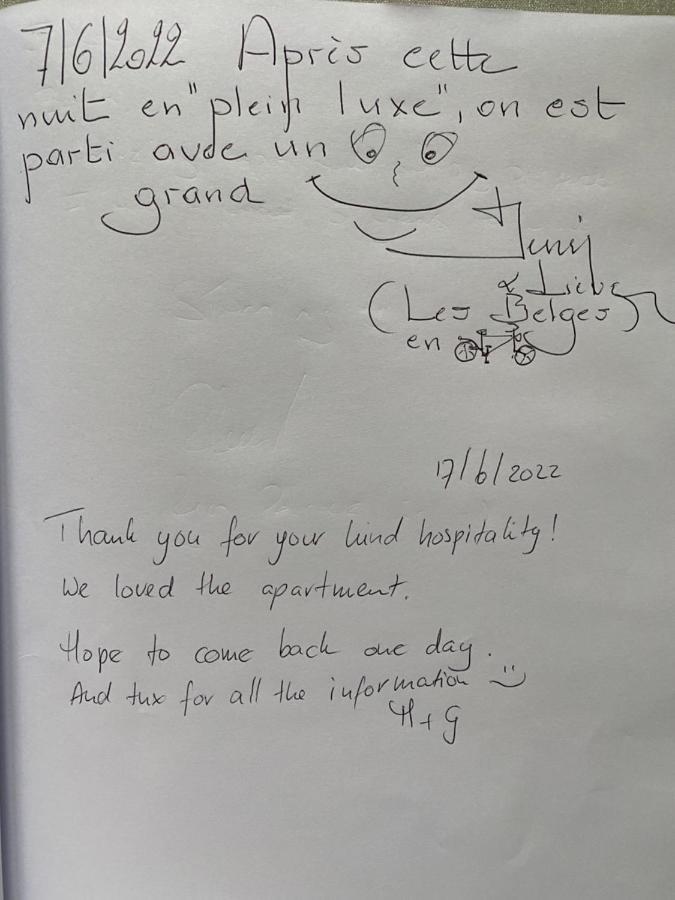 7/6/2022 Après cette
nuit en "plein luxe", on est
parti avde un
grand
Henij
& Lieve
(Les Belges)
en
17/6/2022
Thank you for your kind hospitality!
We loved the apartment.
Hope to come back one day.
And tnx for all the information :)
H+G